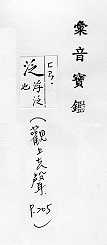 彙音寶鑑
ㄈㄢˋ
泛 浮泛也
(觀上去聲
P.705)